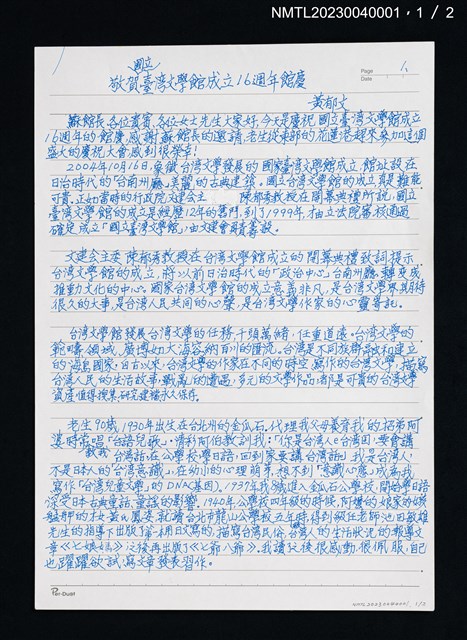 NMTL20230040001，1 / 2
Page 1.
Date
國立
敬賀臺灣文學館成立16週年館慶
黃郁文
蘇館長、各位貴賓、各位女士先生大家好，今天是慶祝國立臺灣文學館成立
16週年的館慶，感謝蘇館長的邀請，老生從東部的花蓮港趕來參加這個
盛大的慶祝大會感到很榮幸！
2004年10月16日，象徵台灣文學發展的國家臺灣文學館成立，館址設在
日治時代的「台南州廳」美麗的古典建築。國立台灣文學館的成立真是難能
可貴。正如當時的行政院文建會主 陳郁秀教授在開幕典禮所說，國立
臺灣文學館的成立是經歷12年的奮鬥，到了1999年，才由立法院審核通過
確定成立「國立臺灣文學館」，由文建會負責籌設。
文建會主委陳郁秀教授在台灣文學館成立的開幕典禮致詞提示
台灣文學館的成立，將以前日治時代的「政治中心」，台南州廳，轉變成
推動文化的中心。國家台灣文學館的成立意義非凡，是台灣文學界期待
很久的大事，是台灣人民共同的心聲，是台灣文學作家的心靈寄託。
台灣文學館發展台灣文學的任務，千頭萬緒，任重道遠。台灣文學的
範疇領域，廣博如大海容納百川的匯流。台灣是不同族群融和建立
的「海島國家」，自古以來，台灣的作家在不同的時空，寫作的台灣文學，描寫
台灣人民的生活故事，戰亂的遭遇，多元的文學作品，都是可貴的台灣文學
資產，值得搜集研究建檔永久保存。
老生90歲，1930年出生在台北州的金瓜石，代理我父母養育我的招弟阿
婆時常唱「台語兒歌」，清科阿伯教訓我：「你是台灣人！台灣囝！要會講
台灣話，在公學校學日語，回到家要講台灣話」。我是台灣人！
不是日本人的「台灣意識」，在幼小的心理萌芽，想不到「意識心態」成為我
寫作「台灣兒童文學」的DNA基因)。1937年我8歲進入金瓜石公學校，開始學日語
深受日本古典童話、童謠的影響。1940年公學校四年級的時候，阿嬤的娘家
艋舺的杜黃氏鳳姿就讀台北市龍山公學校五年時得到級任老師池田敏雄
先生的指導下出版了第一冊日文寫的，描寫台灣風俗，台灣人的生活狀況的報導文
章《七娘媽生》，接著再出版了《七爺八爺》。我讀後很感動，很佩服，自己
也躍躍欲試，寫文章發表習作。
Pen-Dust
NMTL20230040001 1/2